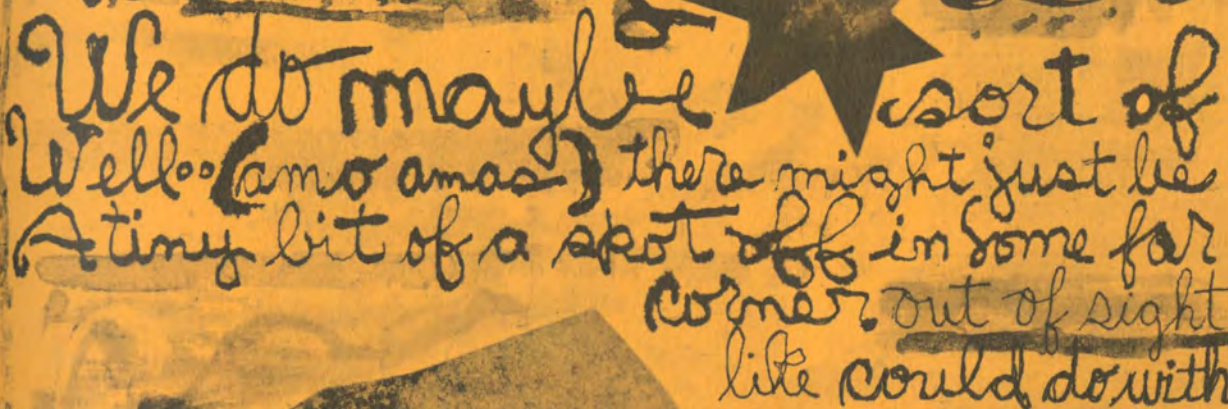 We do maybe sort of
Well.. (amo amas) there might just be
A tiny bit of a spot off in some far
corner. out of sight
like could do with